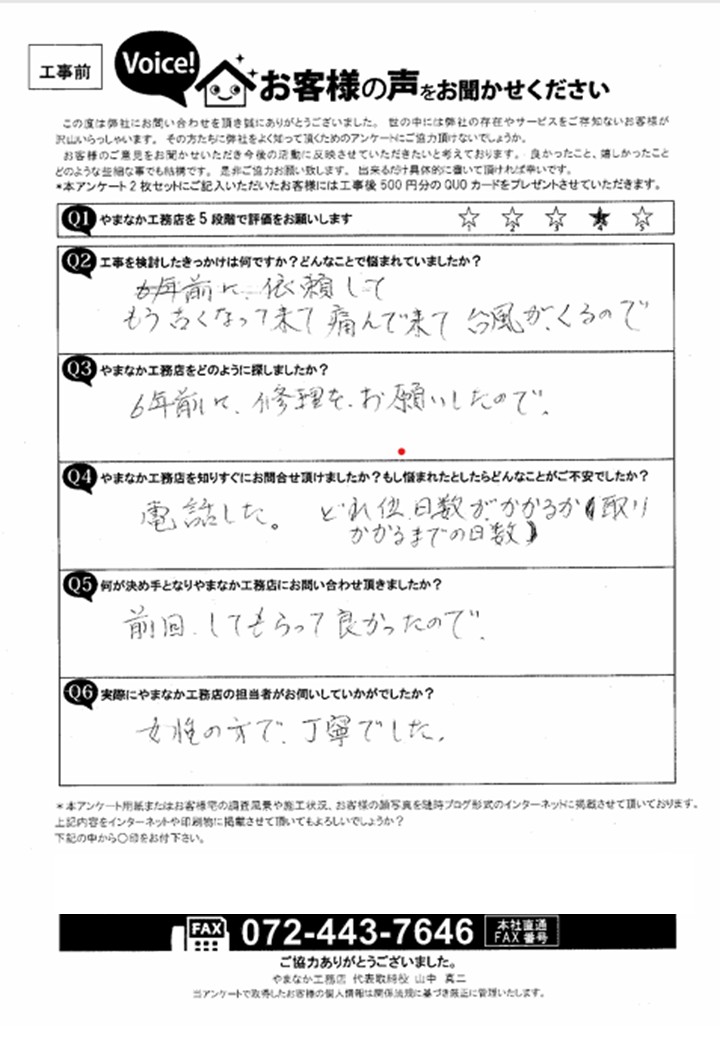 工事前
Voice!
お客様の声をお聞かせください
この度は弊社にお問い合わせを頂き誠にありがとうございました。 世の中には弊社の存在やサービスをご存知ないお客様が
沢山いらっしゃいます。 その方たちに弊社をよく知って頂くためのアンケートにご協力頂けないでしょうか。
お客様のご意見をお聞かせいただき今後の活動に反映させていただきたいと考えております。 良かったこと、嬉しかったこと
どのような些細な事でも結構です。 是非ご協力お願い致します。 出来るだけ具体的に書いて頂ければ幸いです。
*本アンケート2枚セットにご記入いただいたお客様には工事後500円分のQUOカードをプレゼントさせていただきます。
Q1 やまなか工務店を5段階で評価をお願いします
1 2 3 4 5
Q2 工事を検討したきっかけは何ですか?どんなことで悩まれていましたか?
6年前に、依頼して
もう古くなって来て 痛んで来て 台風が、くるので
Q3 やまなか工務店をどのように探しましたか?
6年前に、修理を、お願いしたので、
Q4 やまなか工務店を知りすぐにお問合せ頂けましたか?もし悩まれたとしたらどんなことがご不安でしたか?
電話した。 どれ位、日数が、かかるか(取り
かかるまでの日数)
Q5 何が決め手となりやまなか工務店にお問い合わせ頂きましたか?
前回、してもらって良かったので、
Q6 実際にやまなか工務店の担当者がお伺いしていかがでしたか?
女性の方で、丁寧でした。
*本アンケート用紙またはお客様宅の調査風景や施工状況、お客様の顔写真を随時ブログ形式のインターネットに掲載させて頂いております。
上記内容をインターネットや印刷物に掲載させて頂いてもよろしいでしょうか?
下記の中から○印をお付下さい。
FAX 072-443-7646 本社直通
FAX番号
ご協力ありがとうございました。
やまなか工務店 代表取締役 山中 真二
当アンケートで取得したお客様の個人情報は関係法規に基づき厳正に管理いたします。